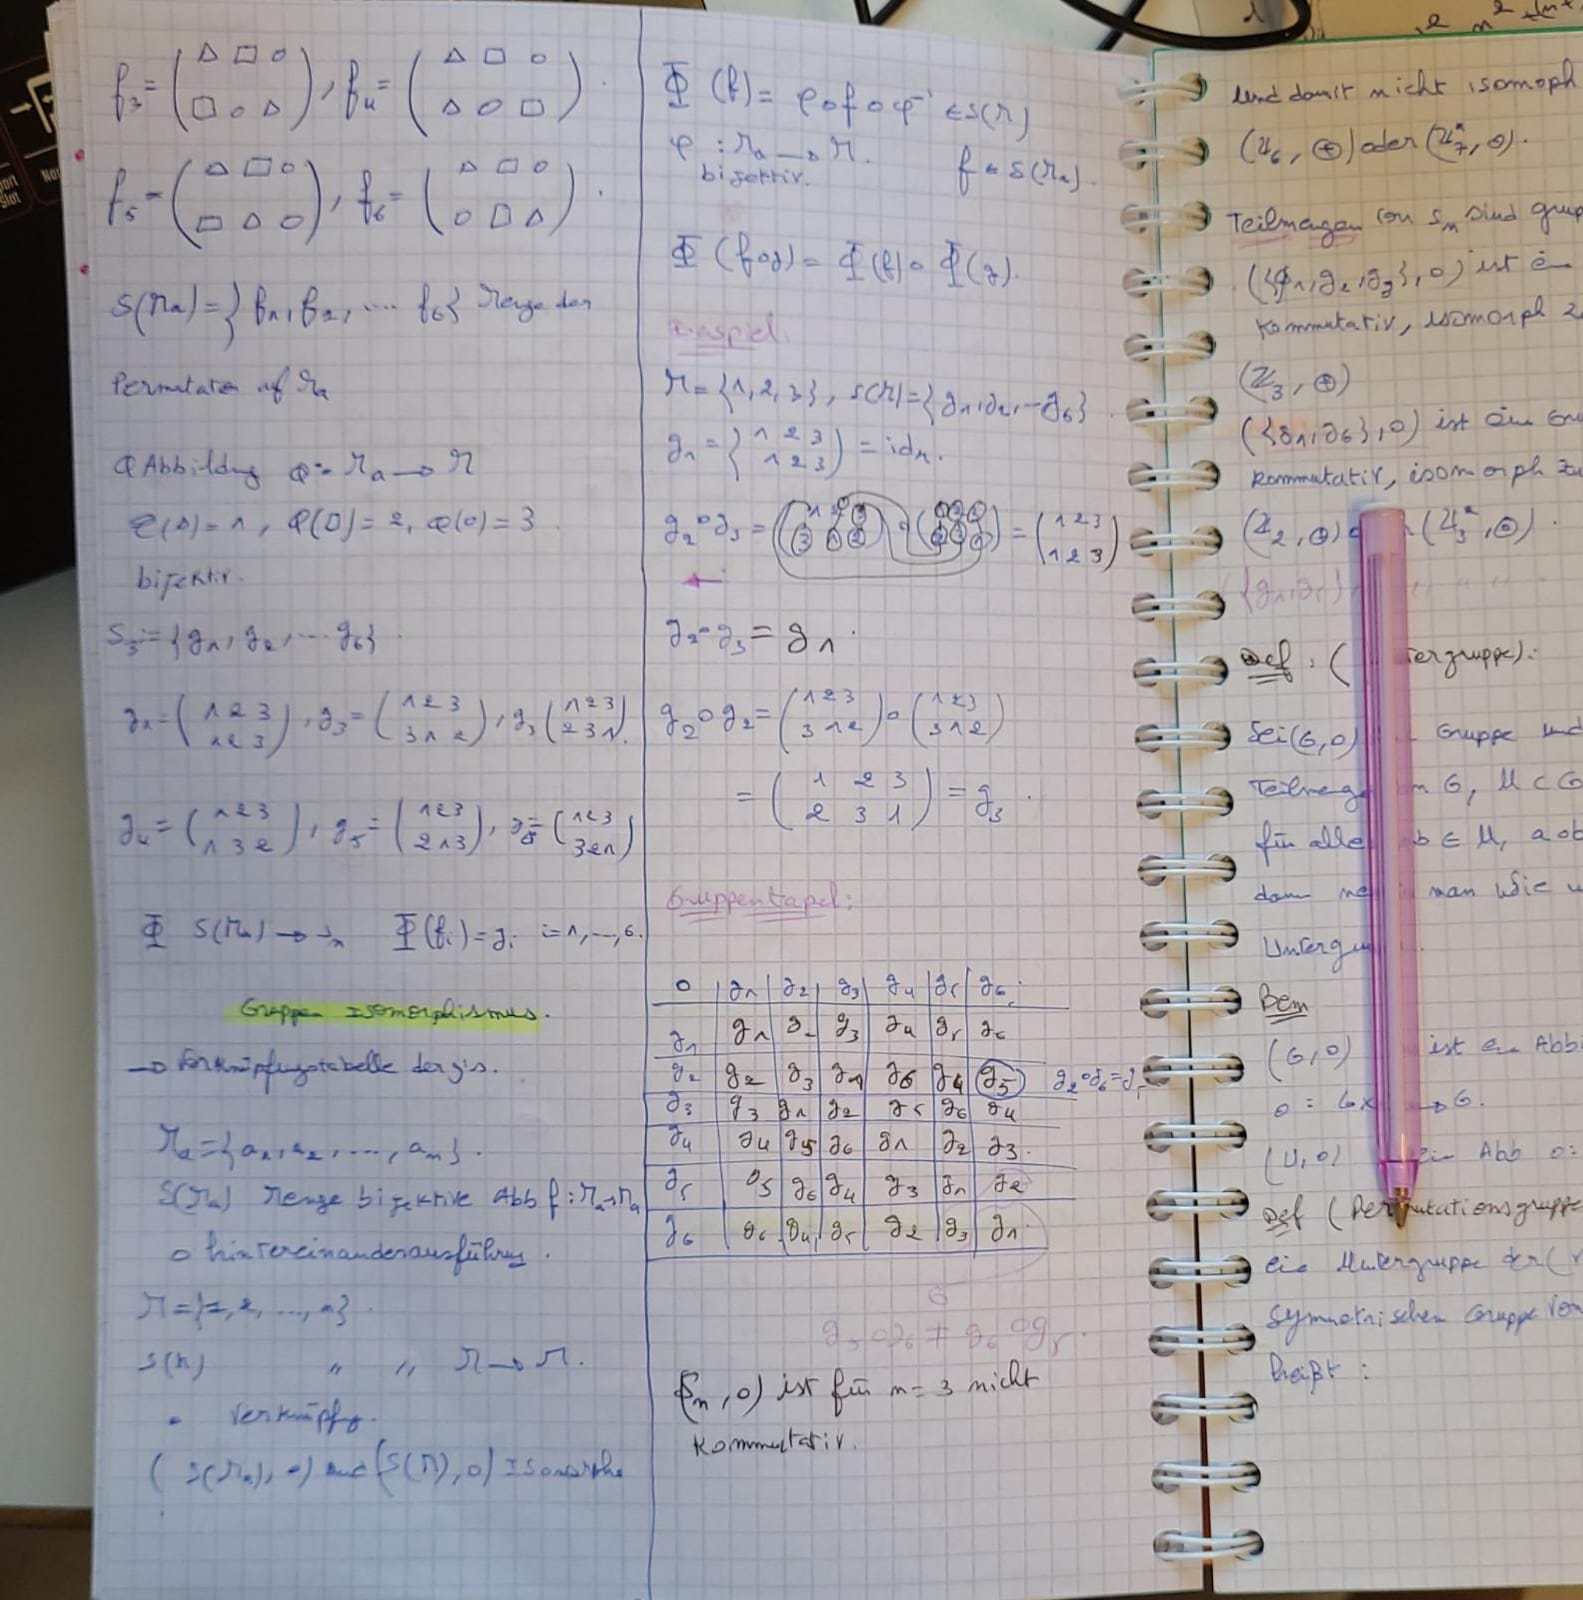 f₃ = (△ □ ○ / □ ○ △), f₄ = (△ □ ○ / △ ○ □).
f₅ = (△ □ ○ / □ △ ○), f₆ = (△ □ ○ / ○ □ △).
S(Ma) = {f₁, f₂, .... f₆} Menge der
Permutation auf Ma
φ Abbildung φ: Ma → M
φ(△) = 1, φ(□) = 2, φ(○) = 3
bijektiv.
S₃ = {g₁, g₂, ... g₆}
g₁ = (1 2 3 / 1 2 3), g₃ = (1 2 3 / 3 1 2), g₃ (1 2 3 / 2 3 1).
g₄ = (1 2 3 / 1 3 2), g₅ = (1 2 3 / 2 1 3), g₆ = (1 2 3 / 3 2 1)
Φ S(Ma) → Sn Φ(fi) = gi i = 1, ..., 6.
Gruppen Isomorphismus.
→ Verknüpfugstabelle der gis.
Ma = {a₁, a₂, ..., an}.
S(Ma) Menge bijektive Abb f: Ma → Ma
o hintereinanderausführung.
M = {1, 2, ..., n}.
S(M) " " M → M.
• Verknüpfg.
(S(Ma), o) und (S(M), o) Isomorphe
Φ(f) = φ o f o φ⁻¹ ∈ S(M)
φ : Ma → M. f ∈ S(Ma).
bijektiv.
Φ(f o g) = Φ(f) o Φ(g).
Beispiel:
M = {1, 2, 3}, S(M) = {g₁, g₂, ... g₆}
g₁ = (1 2 3 / 1 2 3) = idM.
g₂ o g₃ = (1 2 3 / 3 1 2) o (1 2 3 / 2 3 1) = (1 2 3 / 1 2 3)
←
g₂ o g₃ = g₁.
g₂ o g₂ = (1 2 3 / 3 1 2) o (1 2 3 / 3 1 2)
= (1 2 3 / 2 3 1) = g₃.
Gruppentapel:
o | g₁ | g₂ | g₃ | g₄ | g₅ | g₆
g₁ | g₁ | g₂ | g₃ | g₄ | g₅ | g₆
g₂ | g₂ | g₃ | g₁ | g₆ | g₄ | g₅ g₂ o g₆ = g₅
g₃ | g₃ | g₁ | g₂ | g₅ | g₆ | g₄
g₄ | g₄ | g₅ | g₆ | g₁ | g₂ | g₃.
g₅ | g₅ | g₆ | g₄ | g₃ | g₁ | g₂
g₆ | g₆ | g₄ | g₅ | g₂ | g₃ | g₁
g₅ o g₆ ≠ g₆ o g₅.
(Sn, o) ist für n = 3 nicht
kommutativ.
und damit nicht isomoph
(Z₆, ⊕) oder (Z₇*, ⊙).
Teilmengen von Sn sind grup
({g₁, g₂, g₃}, o) ist ein
kommutativ, isomorph zu
(Z₃, ⊕)
({g₁, g₆}, o) ist eine Gru
kommutativ, isomorph zu
(Z₂, ⊕) (Z₃*, ⊙).
{g₁, g₅}, " " "
Def: ( tergruppe):
Sei (G, o) Gruppe und
Teilmenge G, U ⊂ G
für alle b ∈ U, a o b
dann man die U
Untergru
Bem
(G, o) ist ein Abbi
o = G x → G.
(U, o) Abb o:
Def (Permutationsgruppe
eine Untergruppe der (
symmetrischen Gruppe von
heißt: